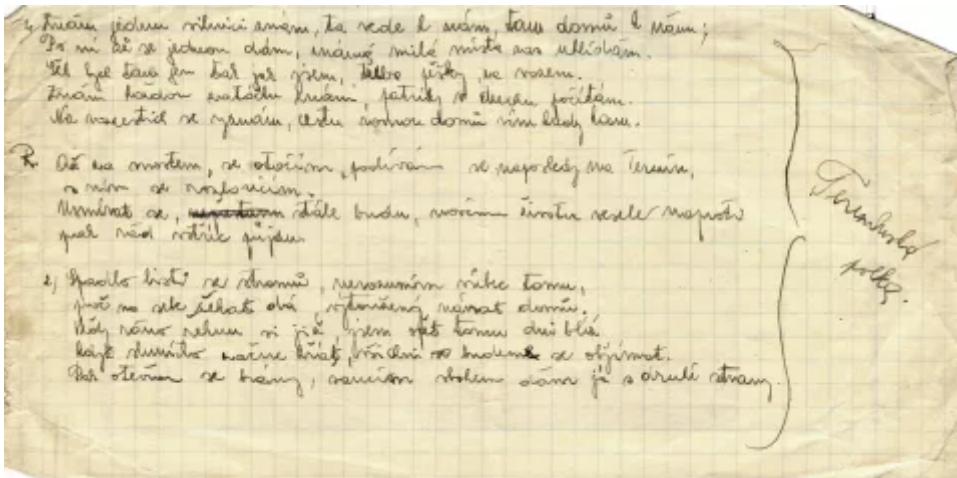 1, Znám jednu silnici znám, ta vede k nám, tam domů k nám;
Po ní až se jednou dám, známá milá místa zas uhlídám.
šel bych tam jen tak jak jsem, třeba pěšky, za vozem.
Znám každou zatáčku známí, patníky v duchu počítám.
Na rozcestích se vyznám, cestu rovnou domů vím kudy tam.
R. Až za mostem, se otočím, podívám se naposledy na Terezín,
s ním se rozloučím.
Usmívat se, stále budu, novému životu vesele naproti
pak rád vstříc půjdu.
2, Spadlo listí se stromů, nerozumím vůbec tomu,
proč na sebe čekat dá, vytoužený návrat domů.
Vždy ráno řeknu si již jsem zas tomu dni blíž.
když sluníčko začne hřát, všichni budeme se objímat.
Pak otevřou se brány, sanicím sbohem dáme já s druhé strany.
Terezínská
polka.